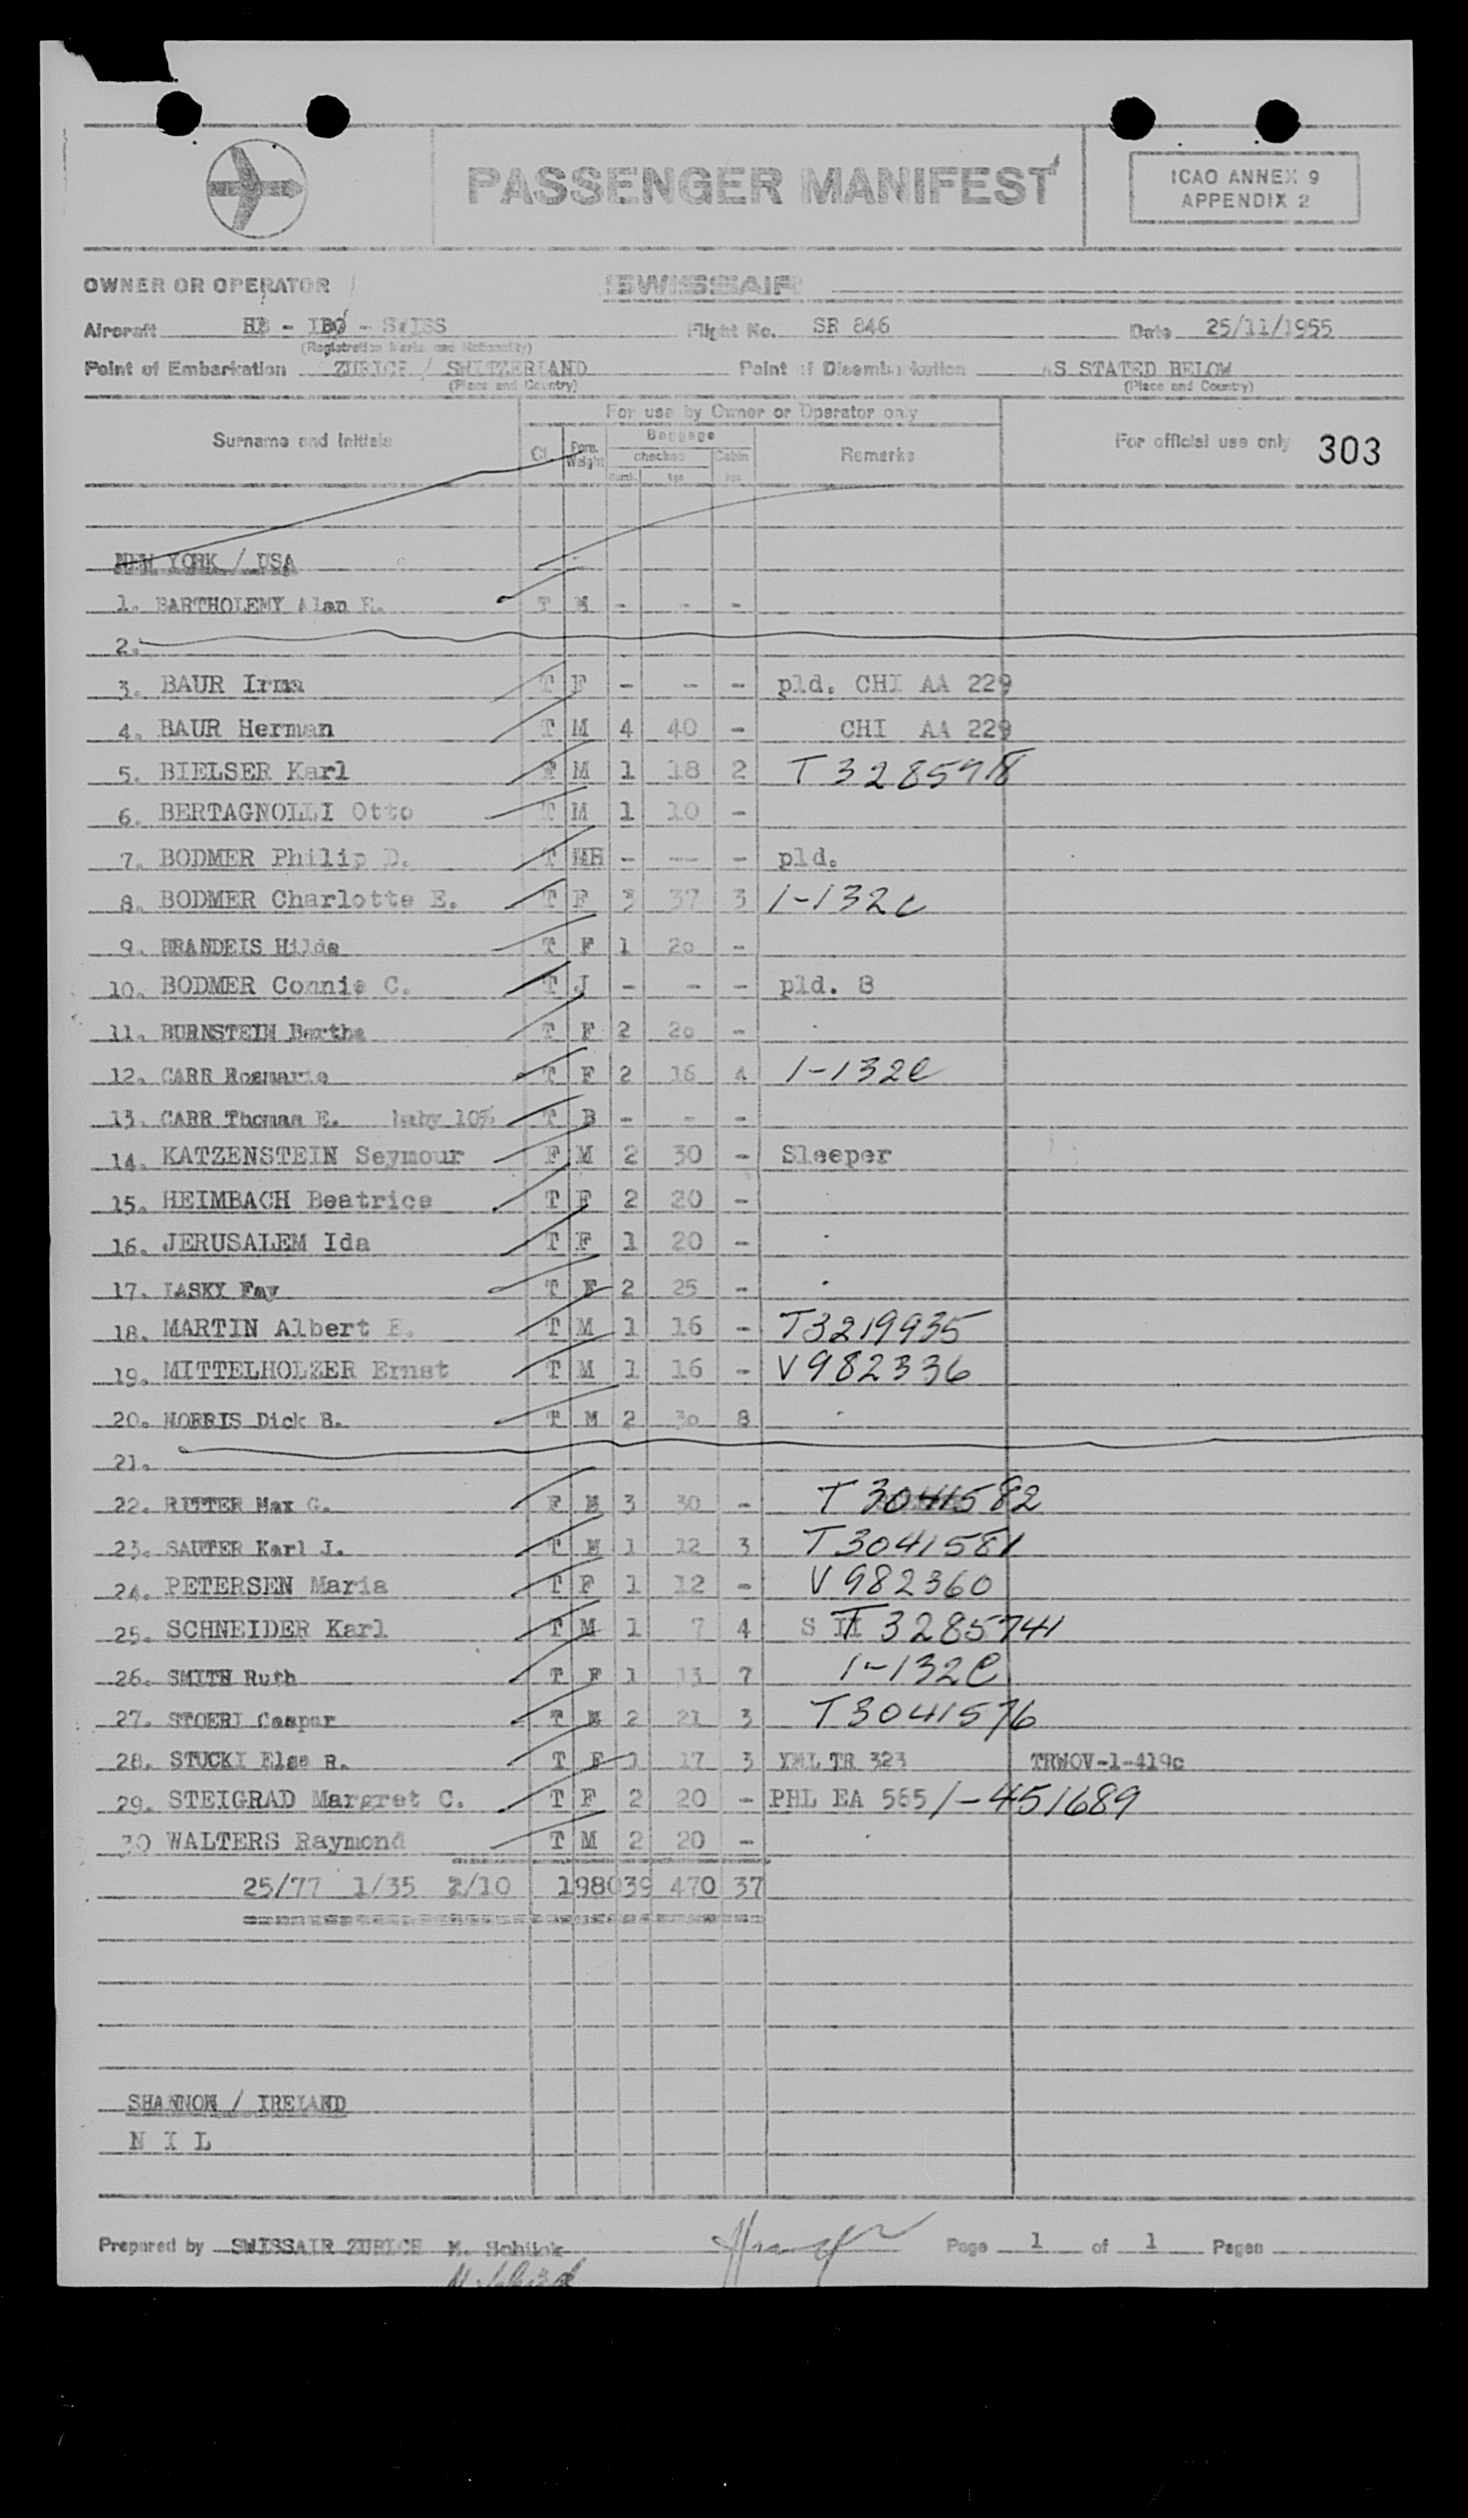 PASSENGER MANIFEST
ICAO ANNEX 9
APPENDIX 2
OWNER OR OPERATOR SWISSAIR
Aircraft HB - IBO - SWISS Flight No. SR 846 Date 25/11/1955
(Registration Marks and Nationality)
Point of Embarkation ZURICH / SWITZERLAND Point of Disembarkation AS STATED BELOW
(Place and Country) (Place and Country)
For use by Owner or Operator only
Surname and Initials Cl. Pers. Weight Baggage checked Cabin Remarks For official use only 303
NEW YORK / USA
1. BARTHOLEMY Alan T M - - -
2.
3. BAUR Irma T F - - - pld. CHI AA 229
4. BAUR Herman T M 4 40 - CHI AA 229
5. BIELSER Karl F M 1 18 2 T
6. BERTAGNOLLI Otto T M 1 10 -
7. BODMER Philip D. T MH - -- - pld.
8. BODMER Charlotte E. T F 3 37 3 1-132c
9. BRANDEIS Hilde T F 1 20 -
10. BODMER Connie C. T J - - - pld. 8
11. BURNSTEIN Bertha T F 2 20 -
12. CARR Rosmarie T F 2 16 4 1-132c
13. CARR Thomas E. baby 10% T B - - -
14. KATZENSTEIN Seymour F M 2 30 - Sleeper
15. HEIMBACH Beatrice T F 2 20 -
16. JERUSALEM Ida T F 1 20 -
17. LASKY Fay T F 2 25 -
18. MARTIN Albert E. T M 1 16 - T3219935
19. MITTELHOLZER Ernst T M 1 16 - V982336
20. MORRIS Dick B. T M 2 30 8
21.
22. RITTER Max G. F M 3 30 - T 3041582
23. SAUTER Karl J. T M 1 12 3 T3041581
24. PETERSEN Maria T F 1 12 - V982360
25. SCHNEIDER Karl T M 1 7 4 S T 3285741
26. SMITH Ruth T F 1 13 7 1-132C
27. STOERI Caspar T M 2 21 3 T3041576
28. STUCKI Else R. T F 1 17 3 YML TR 323 TRWOV-1-419c
29. STEIGRAD Margret C. T F 2 20 - PHL EA 565 1-451689
30 WALTERS Raymond T M 2 20 -
25/77 1/35 2/10 1980 39 470 37
SHANNON / IRELAND
N I L
Prepared by SWISSAIR ZURICH M. Schück Page 1 of 1 Pages